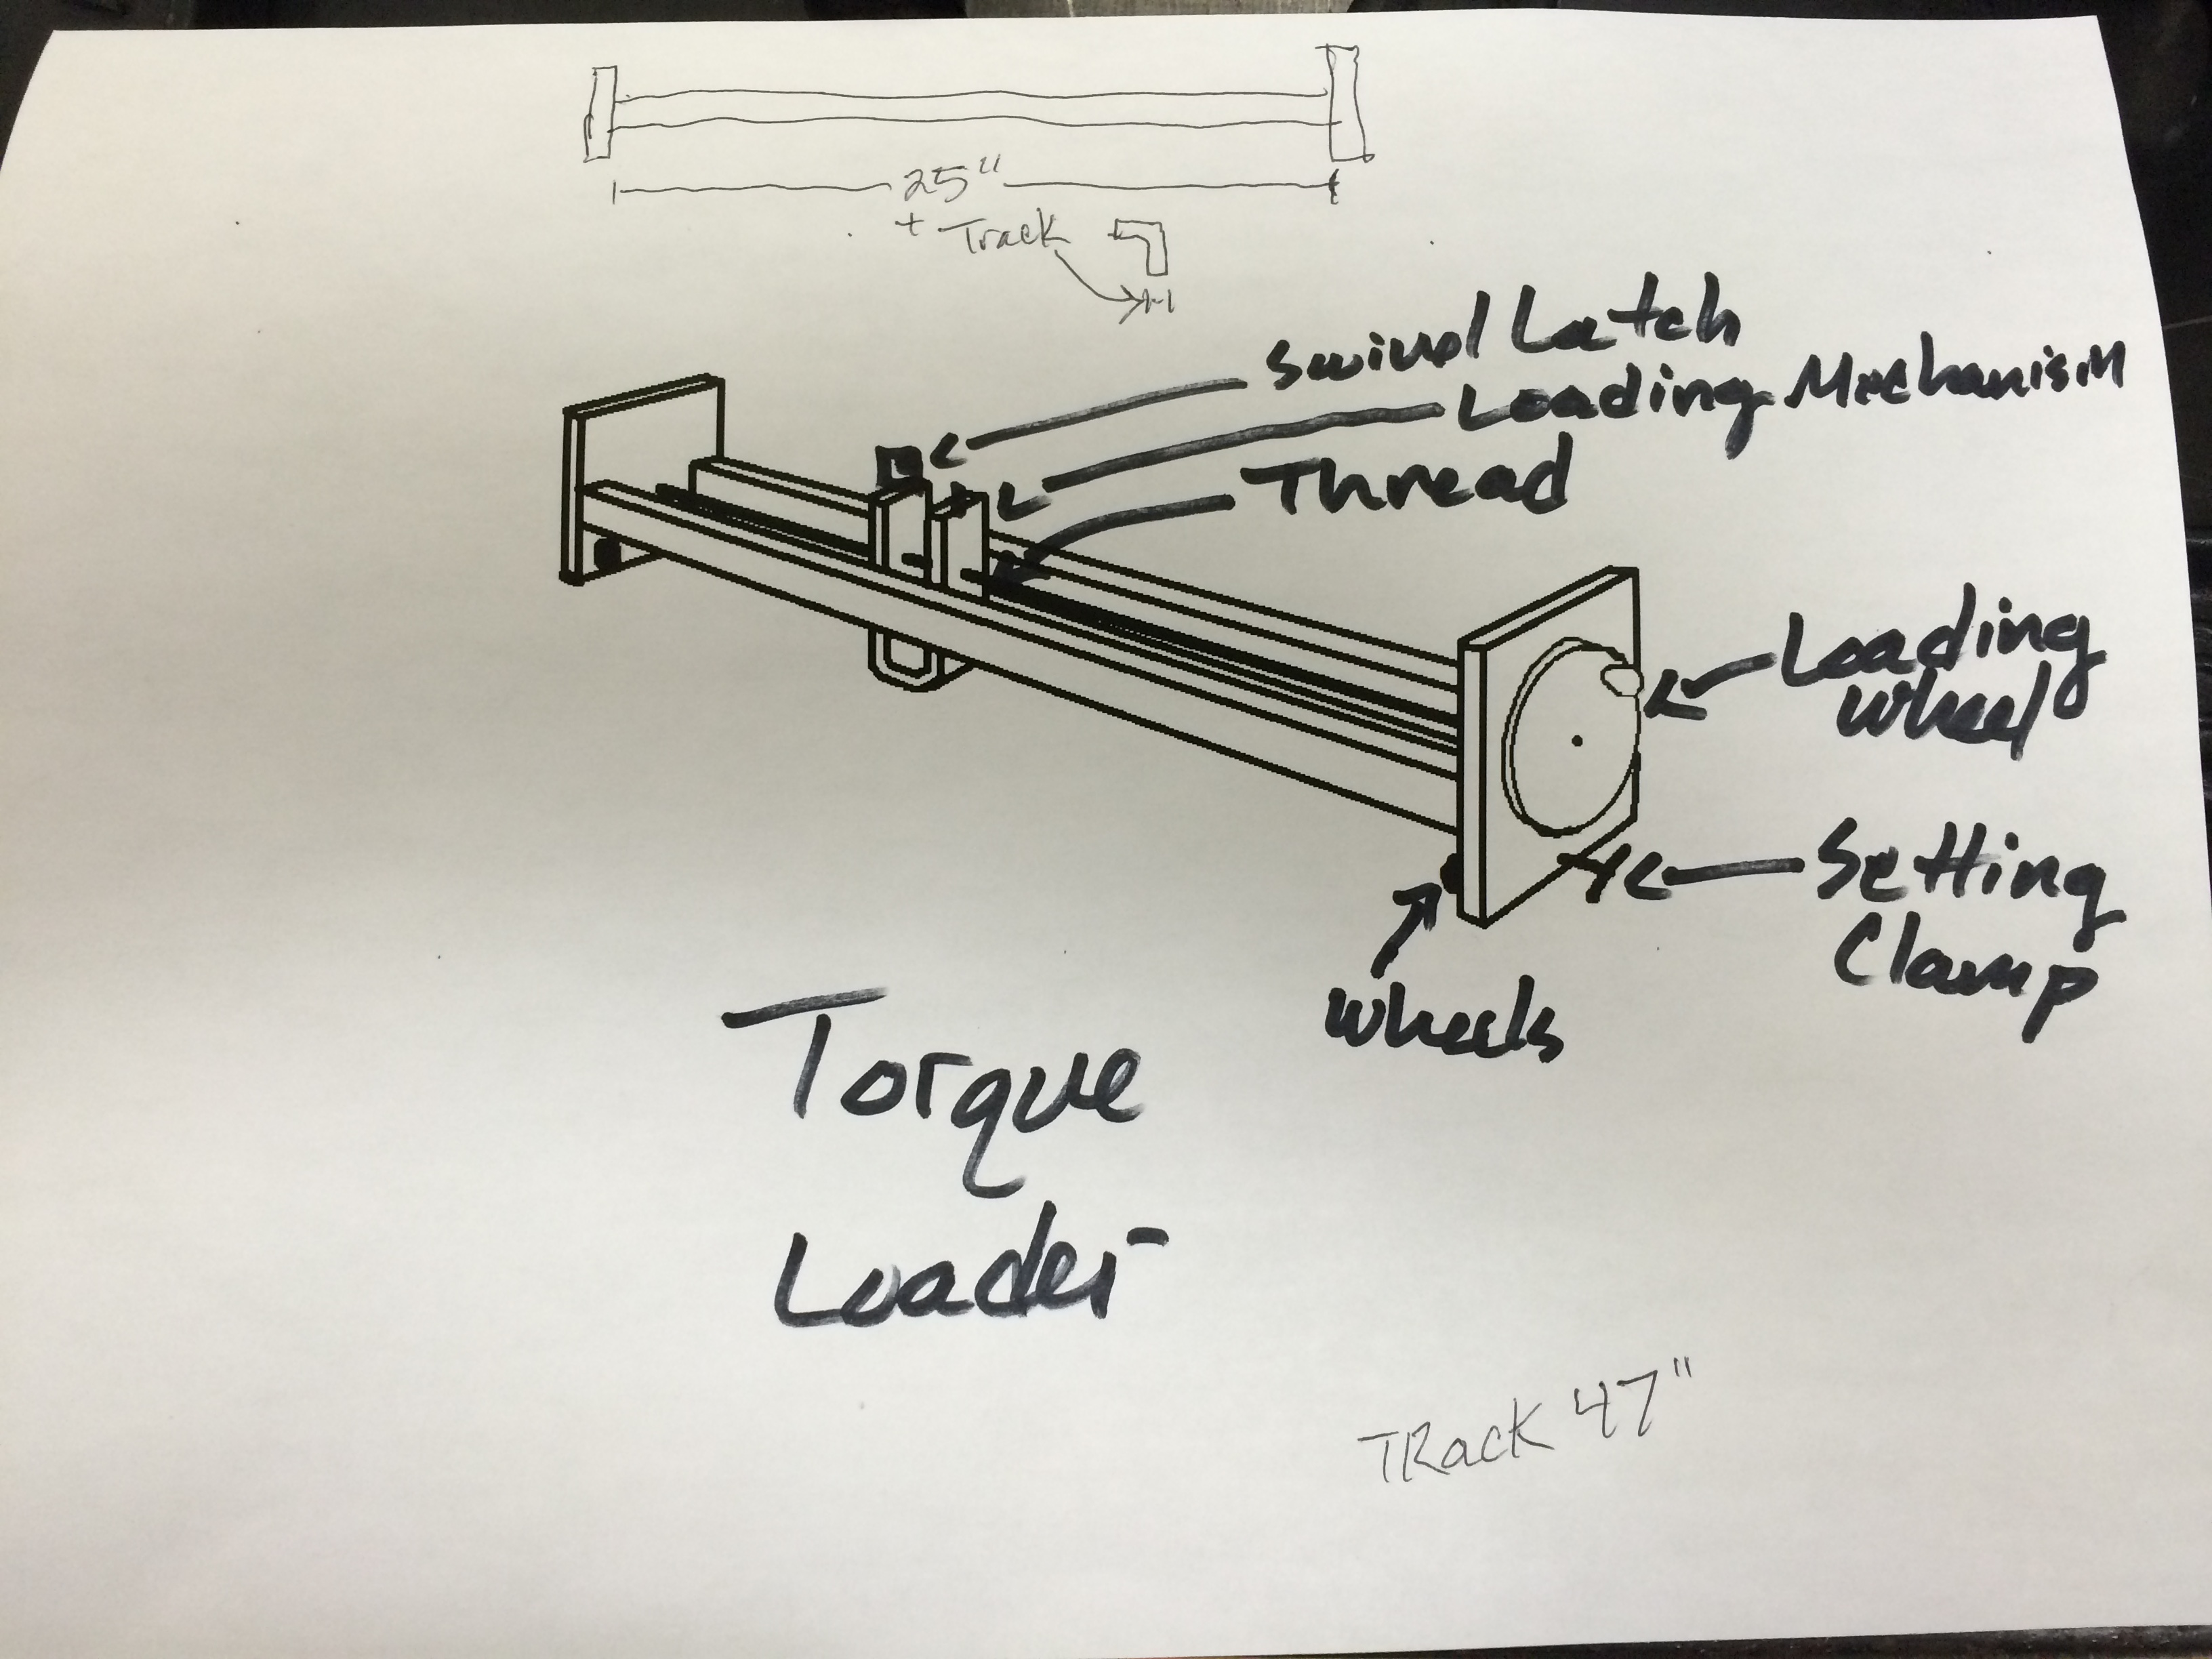 25"
+ Track
Swivel Latch
Loading Mechanism
Thread
Loading
Wheel
Setting
Clamp
Wheels
Torque
Loader
TRack 47"